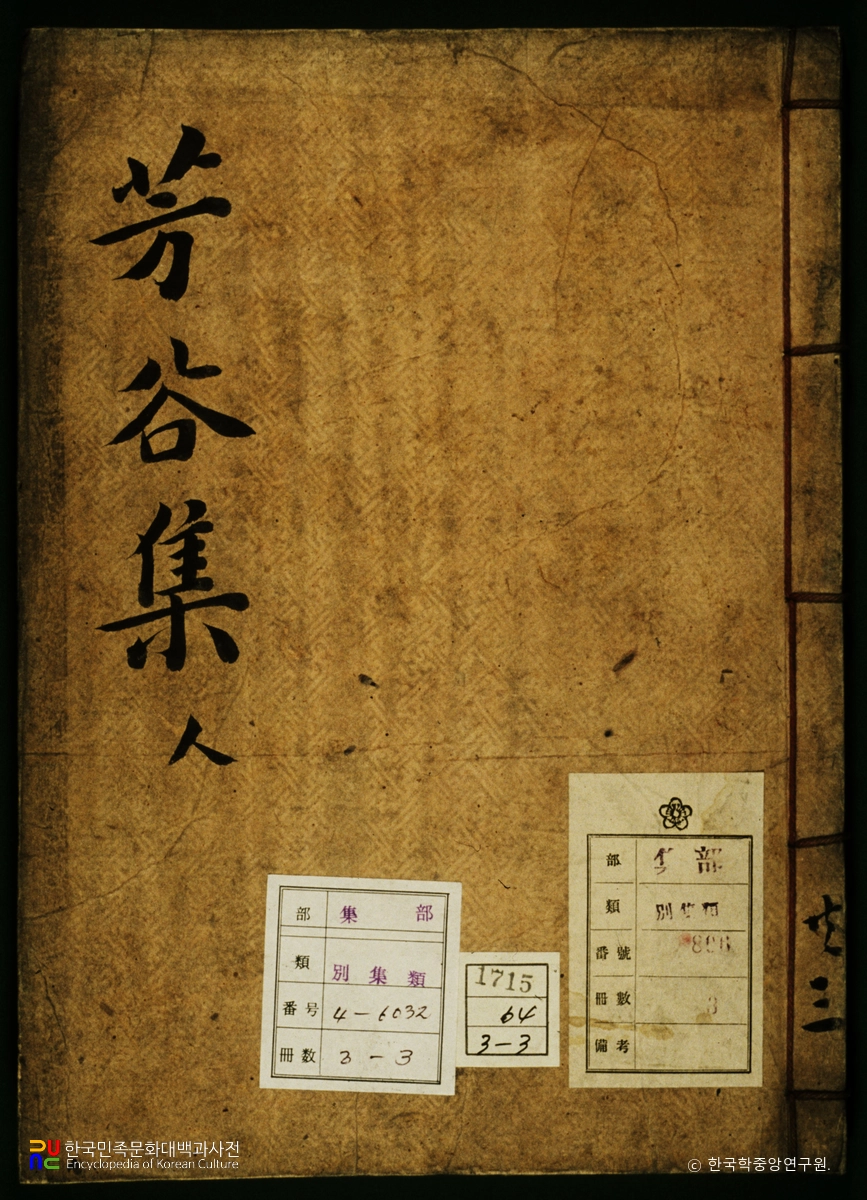 芳谷集 人
共三
部 集部
類 別集類
番号 4-6032
冊数 3-3
1715
64
3-3
部 部
類 別
番號
冊數 3
備考
한국민족문화대백과사전
Encyclopedia of Korean Culture
ⓒ 한국학중앙연구원.